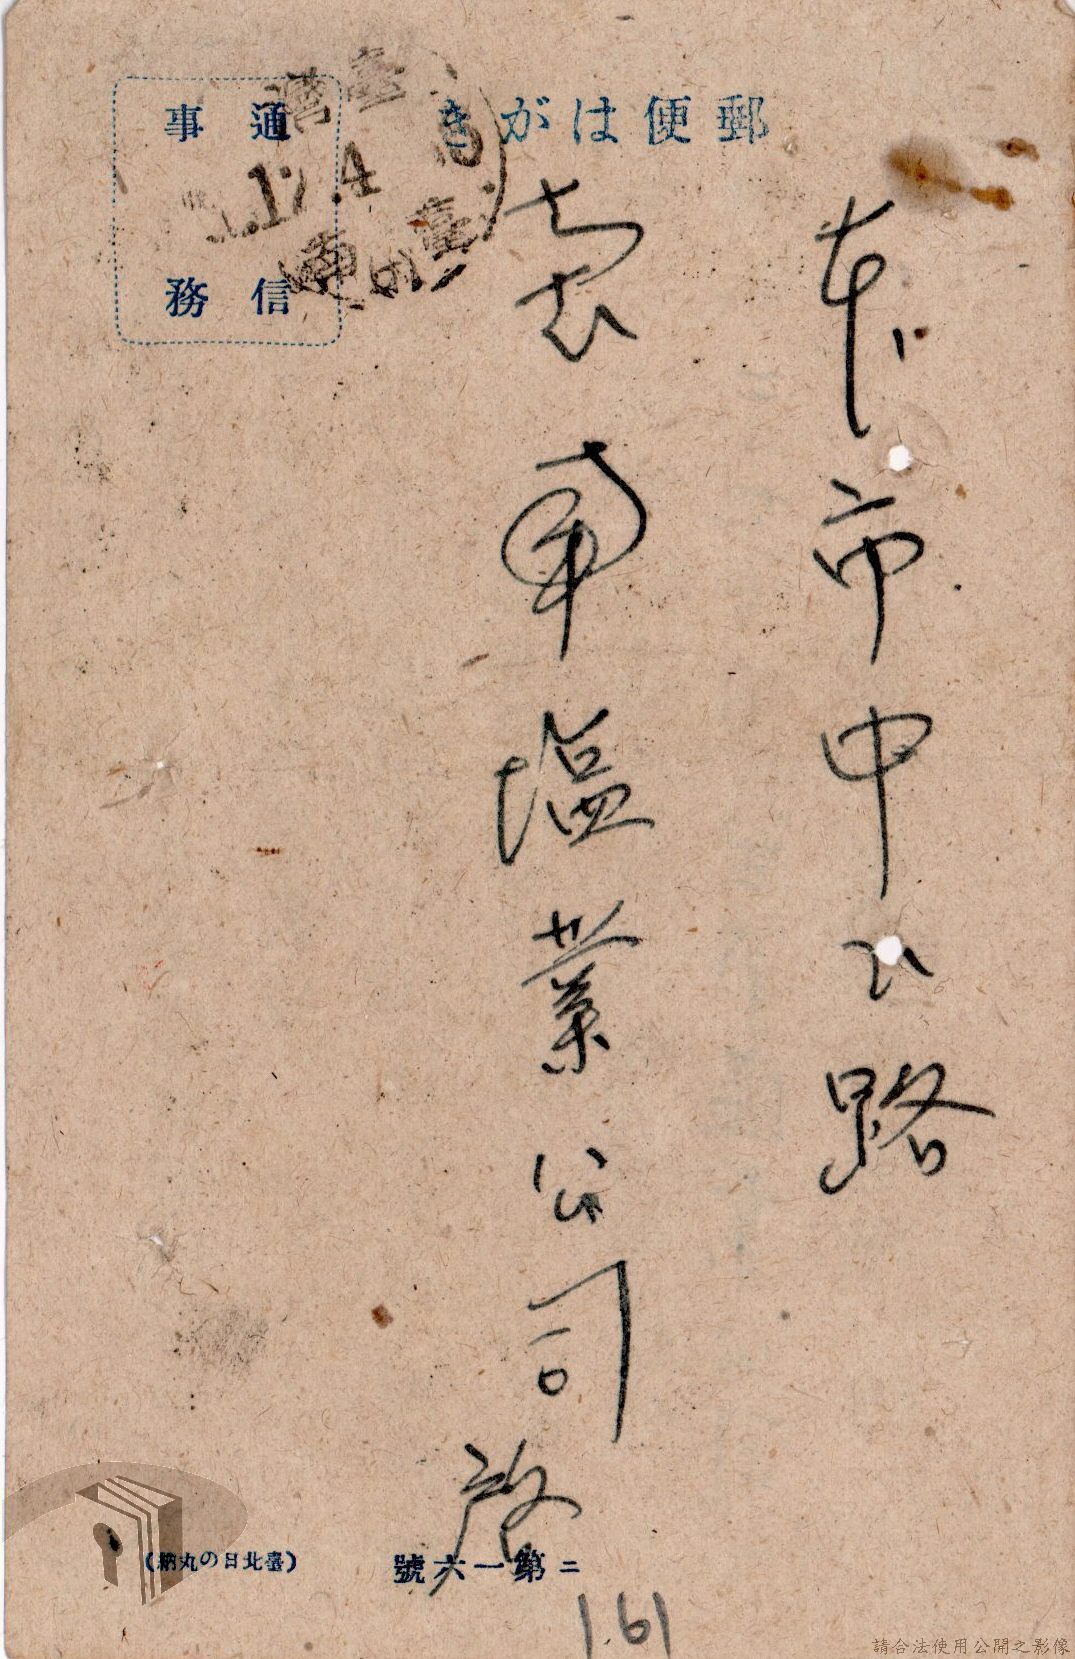 郵便はがき
通信
事務
17.4
本市中 路
臺南塩業公司 啓
二第一六號
(臺北日の丸納)
161
請合法使用公開之影像